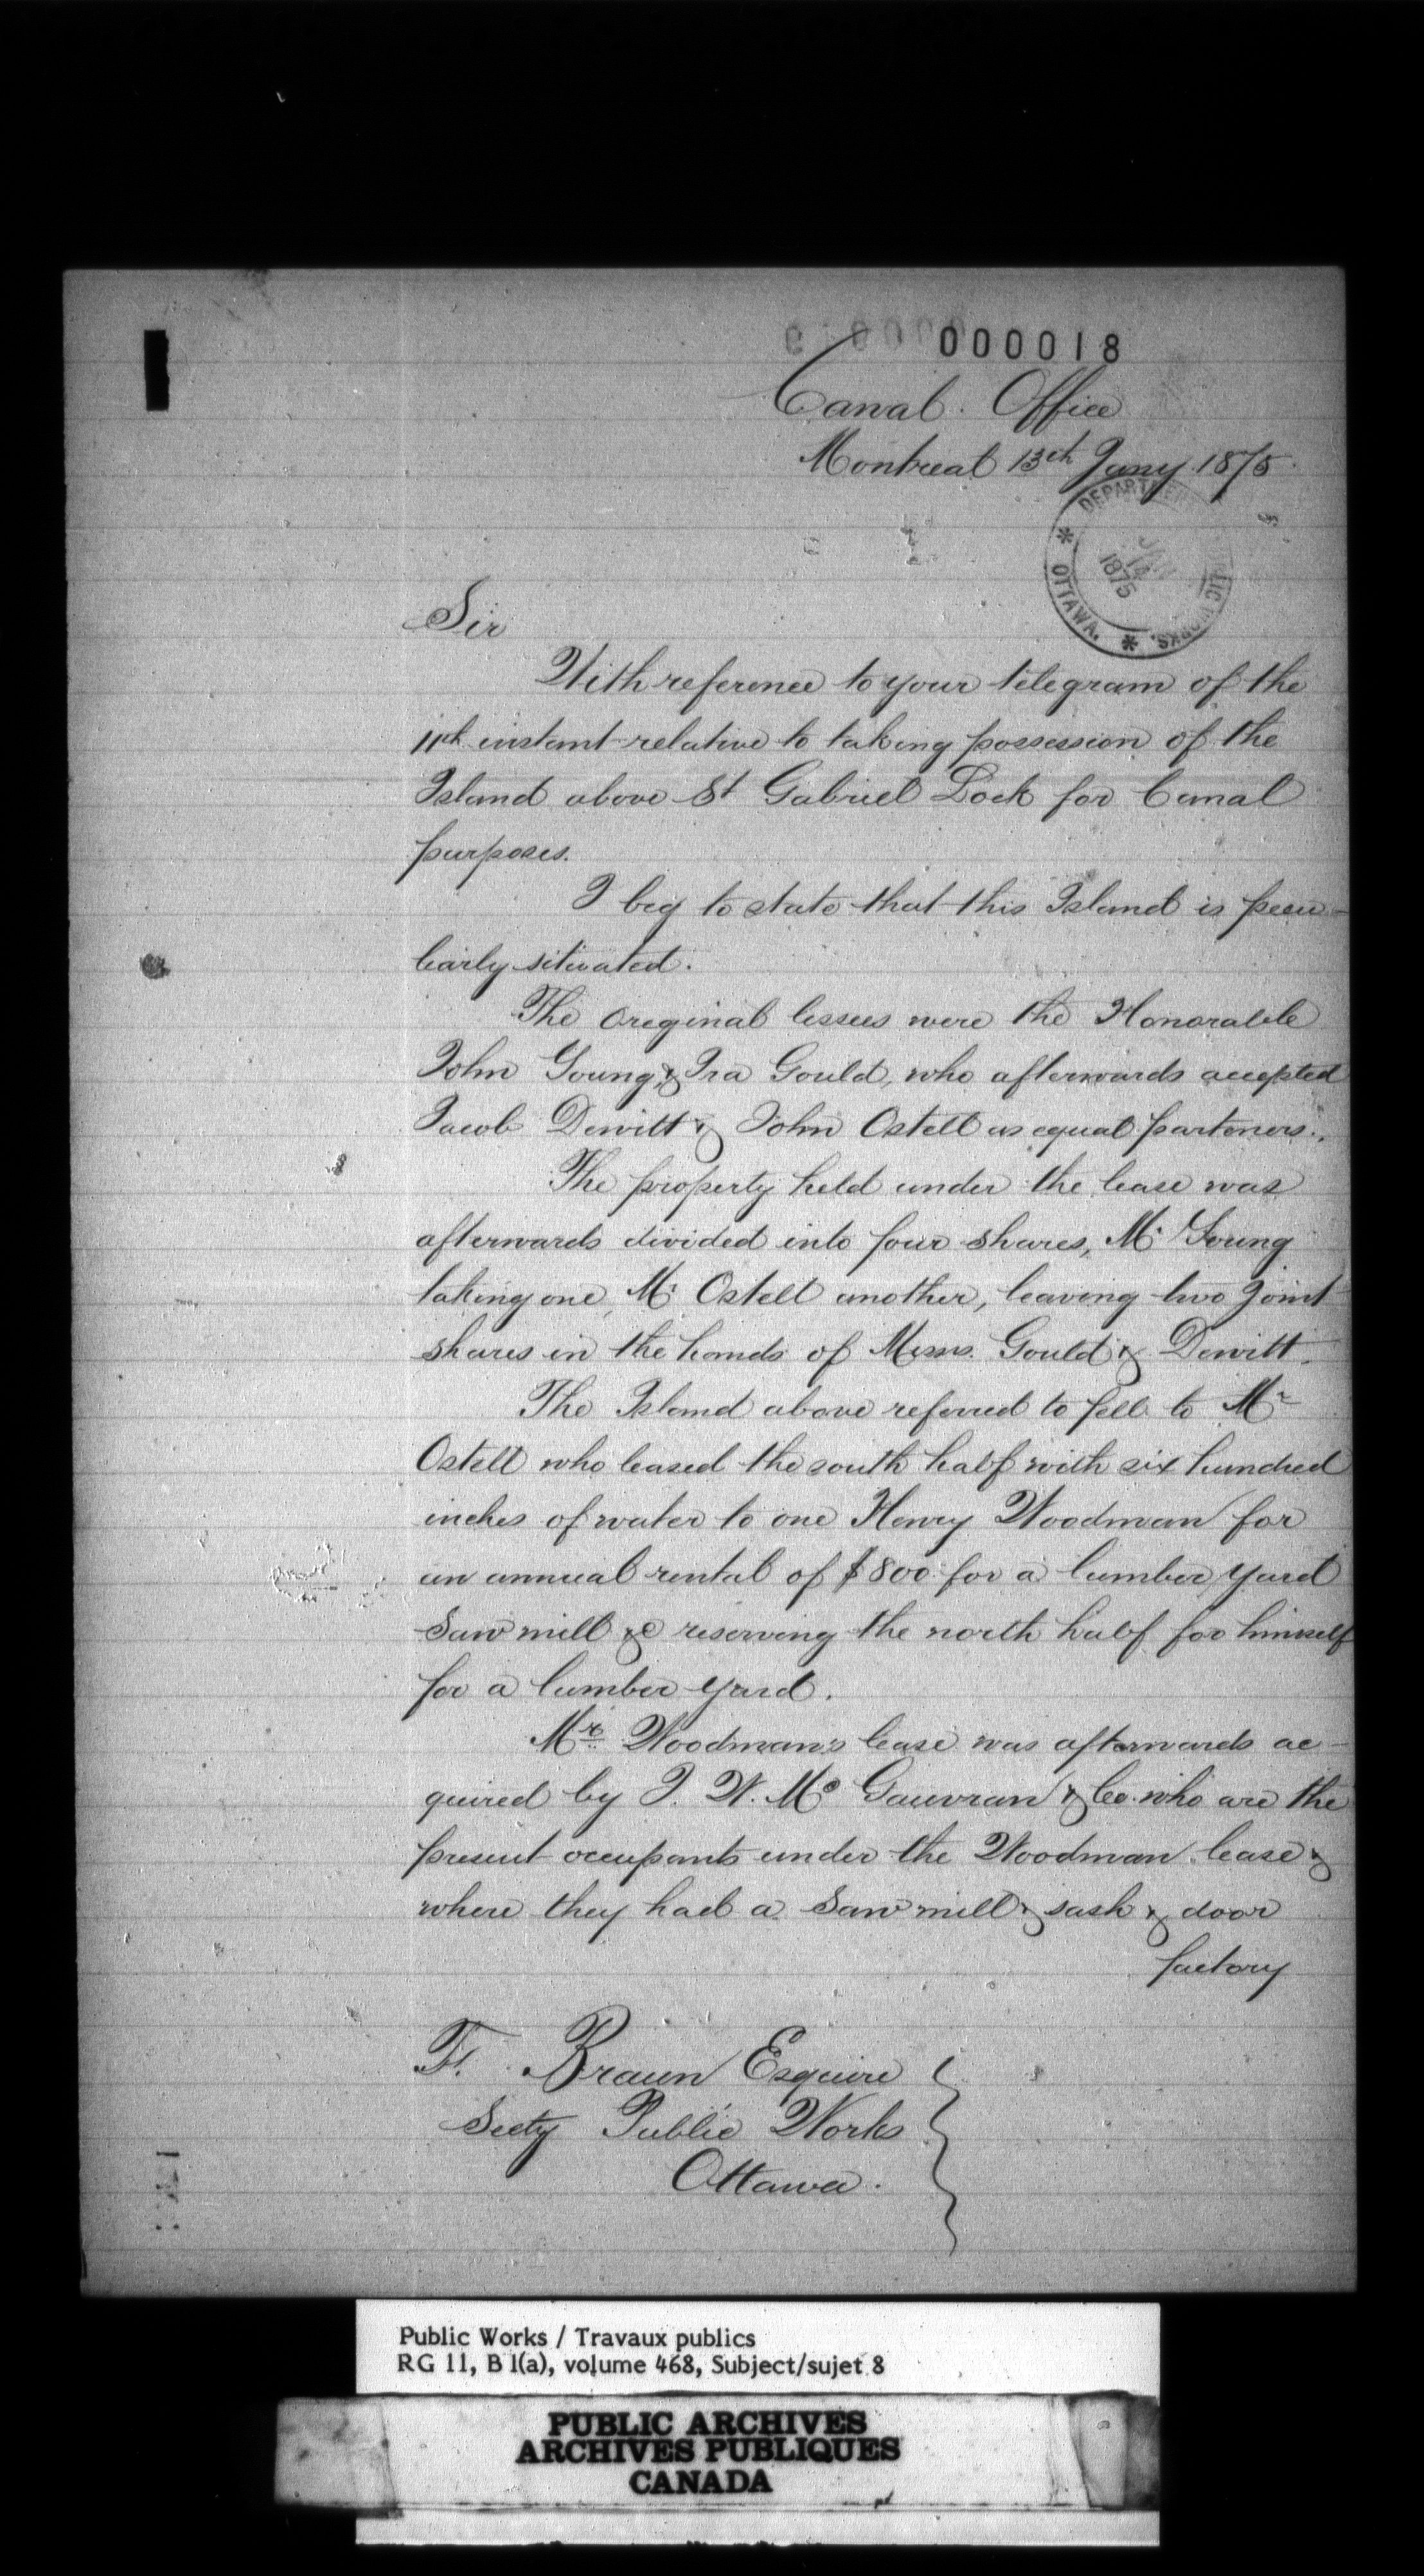 000018
Canal Office
Montreal 13th Jany 1875
DEPARTMENT PUBLIC WORKS.
JAN 14 1875
OTTAWA.
Sir
With reference to your telegram of the
11th instant relative to taking possession of the
Island above St Gabriel Lock for Canal
purposes.
I beg to state that this Island is pecu-
liarly situated.
The original lessees were the Honorable
John Young & Ira Gould, who afterwards accepted
Jacob Dewitt & John Ostell as equal partners.
The property held under the lease was
afterwards divided into four shares, Mr Young
taking one, Mr Ostell another, leaving two joint
shares in the hands of Messrs. Gould & Dewitt.
The Island above referred to fell to Mr
Ostell who leased the south half with six hundred
inches of water to one Henry Woodman for
an annual rental of $800 for a lumber yard
Saw mill &c reserving the north half for himself
for a lumber yard.
Mr. Woodman's lease was afterwards ac-
quired by J. W. Mc Gauvran & Co. who are the
present occupants under the Woodman lease &
where they had a Saw mill & sash & door
factory
F. Braun Esquire
Secty Public Works
Ottawa.
Public Works / Travaux publics
RG 11, B 1(a), volume 468, Subject/sujet 8
PUBLIC ARCHIVES
ARCHIVES PUBLIQUES
CANADA